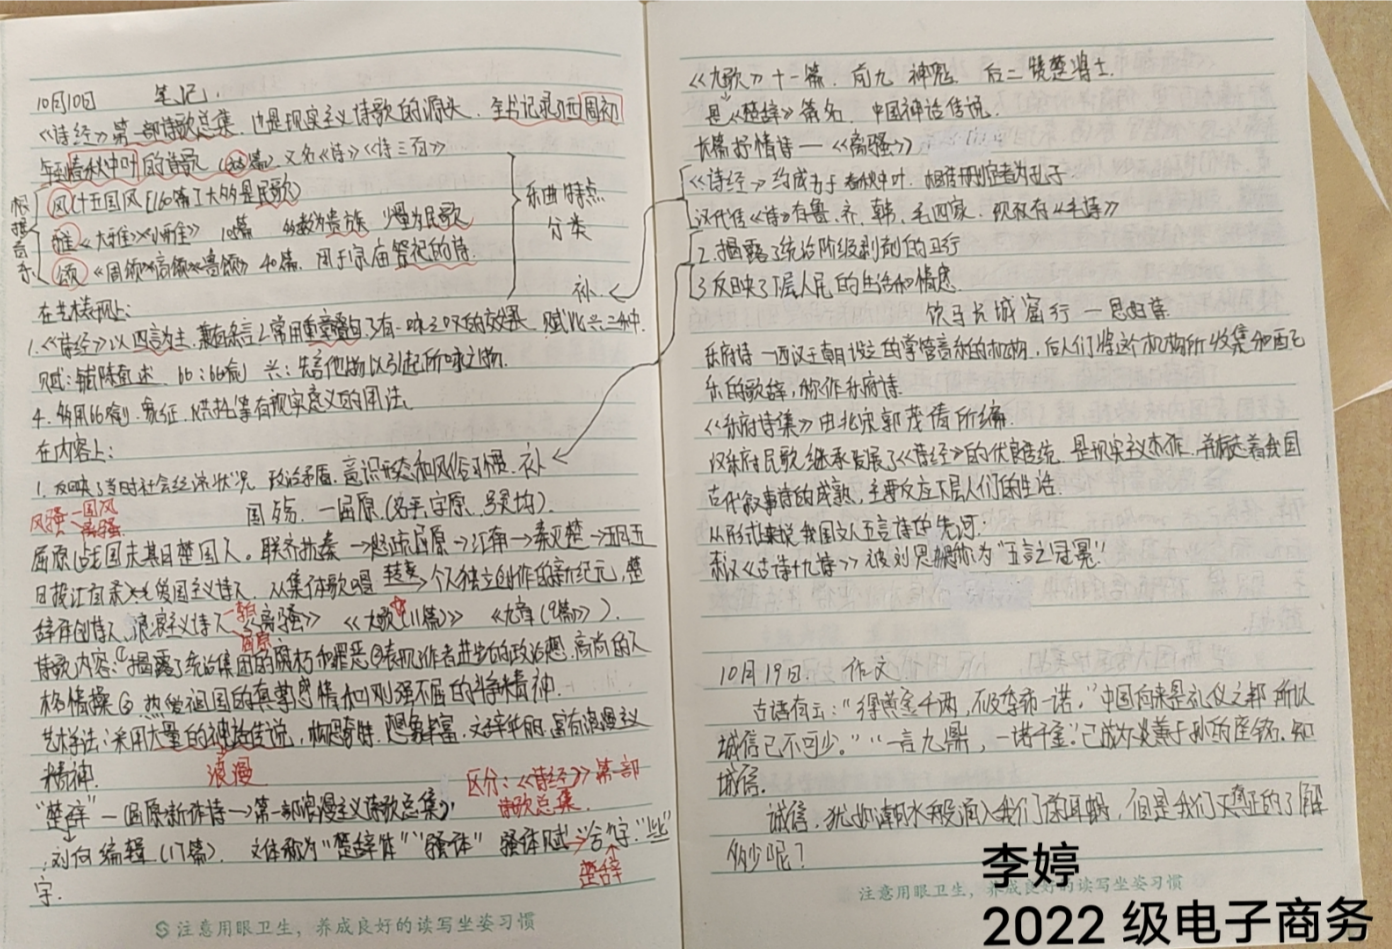 10月10日 笔记.
《诗经》第一部诗歌总集.也是现实主义诗歌的源头.全书记录了西周初
年到春秋中叶的诗歌(305篇)又名《诗》《诗三百》
根据音乐
风《十五国风》[160篇]大多是民歌
雅《大雅》《小雅》105篇 多数为贵族 少量为民歌
颂《周颂》《商颂》《鲁颂》40篇.用于宗庙祭祀的诗.
乐曲特点
分类
补
在艺术表现上:
1.《诗经》以四言为主.兼有杂言2.常用重章叠句3.有一咏三叹的效果.赋比兴三种.
赋:铺陈直述. 比:比喻 兴:先言他物以引起所咏之物.
4.多用比喻.象征.烘托等有现实意义的用法.
在内容上:
1.反映了当时社会经济状况.政治矛盾.意识形态和风俗习惯.补
风骚 国风
离骚
国殇.一屈原(名平,字原.号灵均).
屈原:战国末期楚国人。联齐抗秦→怒疏屈原→江南→秦灭楚→五月五
日投江自杀 爱国主义诗人.从集体歌唱转变→个人独立创作的新纪元,楚
辞体创诗人.浪漫主义诗人《离骚》《九歌(11篇)》《九章(9篇)》).
诗歌内容:①揭露了统治集团的腐朽和罪恶②表现了作者进步的政治理想.高尚的人
格情操③热爱祖国的真挚感情和刚强不屈的斗争精神.
艺术手法:采用大量的神话传说,构思奇特.想象丰富.文辞华丽.富有浪漫主义
精神. 浪漫
区分:《诗经》第一部
诗歌总集.
"楚辞"—屈原新体诗→第一部浪漫主义诗歌总集》,
刘向编辑(17篇). 文体称为"楚辞体""骚体" 骚体赋→含字."些"
楚辞
字.
注意用眼卫生,养成良好的读写坐姿习惯
《九歌》十一篇.前九 神鬼. 后二赞楚将士.
是《楚辞》篇名. 中国神话传说.
长篇抒情诗—《离骚》
《诗经》约成书于春秋中叶.相传删定者为孔子
汉代传《诗》有鲁.齐.韩.毛四家.现仅有《毛诗》
2.揭露了统治阶级剥削的卫行
3.反映了下层人民的生活和情感.
饮马长城窟行—思妇篇
乐府诗—西汉王朝设立的掌管音乐的机构,后人们将这个机构所收集和配
乐的歌辞,称作乐府诗.
《乐府诗集》由北宋郭茂倩所编.
汉乐府民歌继承发展了《诗经》的优良传统.是现实主义杰作.并标志着我国
古代叙事诗的成熟,主要反应下层人们的生活.
从形式来说我国文人五言诗的先河:
东汉《古诗十九首》被刘勰称为"五言之冠冕"!
10月19日. 作文
古语有云:"得黄金千两,不及季布一诺。"中国向来是礼仪之邦所以
诚信已不可少。""一言九鼎,一诺千金."已成为炎黄子孙的座右铭.知
诚信.
诚信.犹如潮水般涌入我们的耳蜗,但是我们又真正的了解
多少呢?
注意用眼卫生,养成良好的读写坐姿习惯
李婷
2022 级电子商务